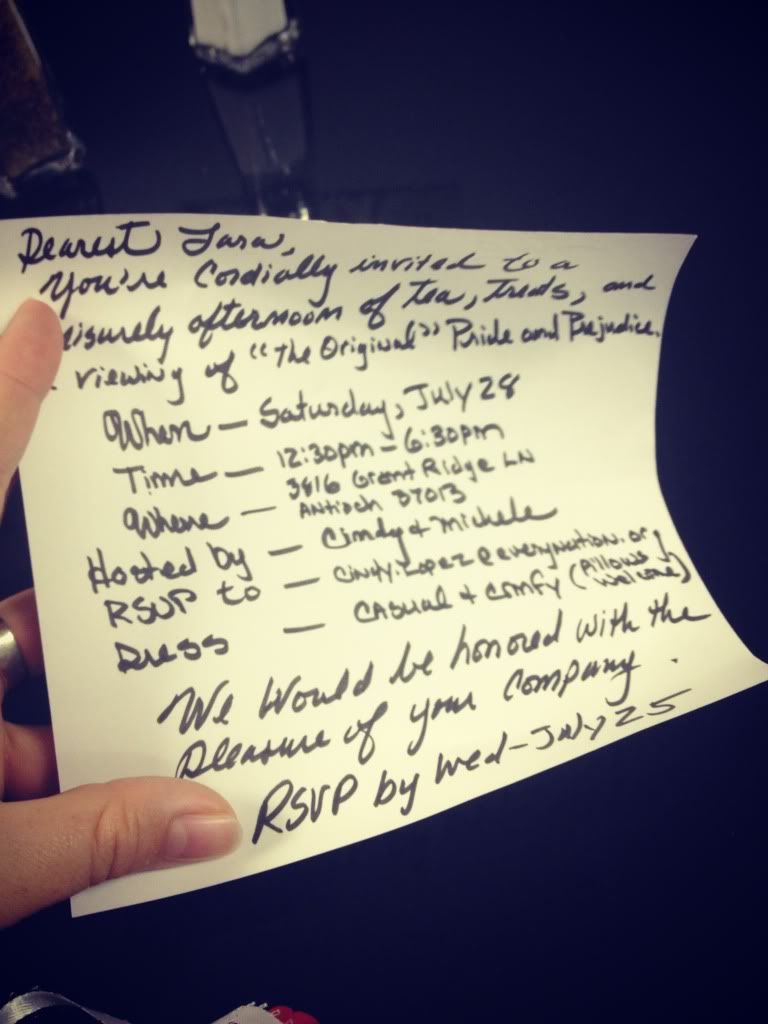 Dearest Tara,
You're Cordially invited to a
leisurely afternoon of tea, treats, and
a viewing of "The Original" Pride and Prejudice.
When — Saturday, July 28
Time — 12:30pm – 6:30pm
Where — 3816 Grant Ridge LN
Antioch 37013
Hosted by — Cindy & Michele
RSVP to — cindy.lopez@everynation.org
Dress — Casual & Comfy (Pillows Welcome)
We Would be honored with the
pleasure of your Company.
RSVP by Wed – July 25